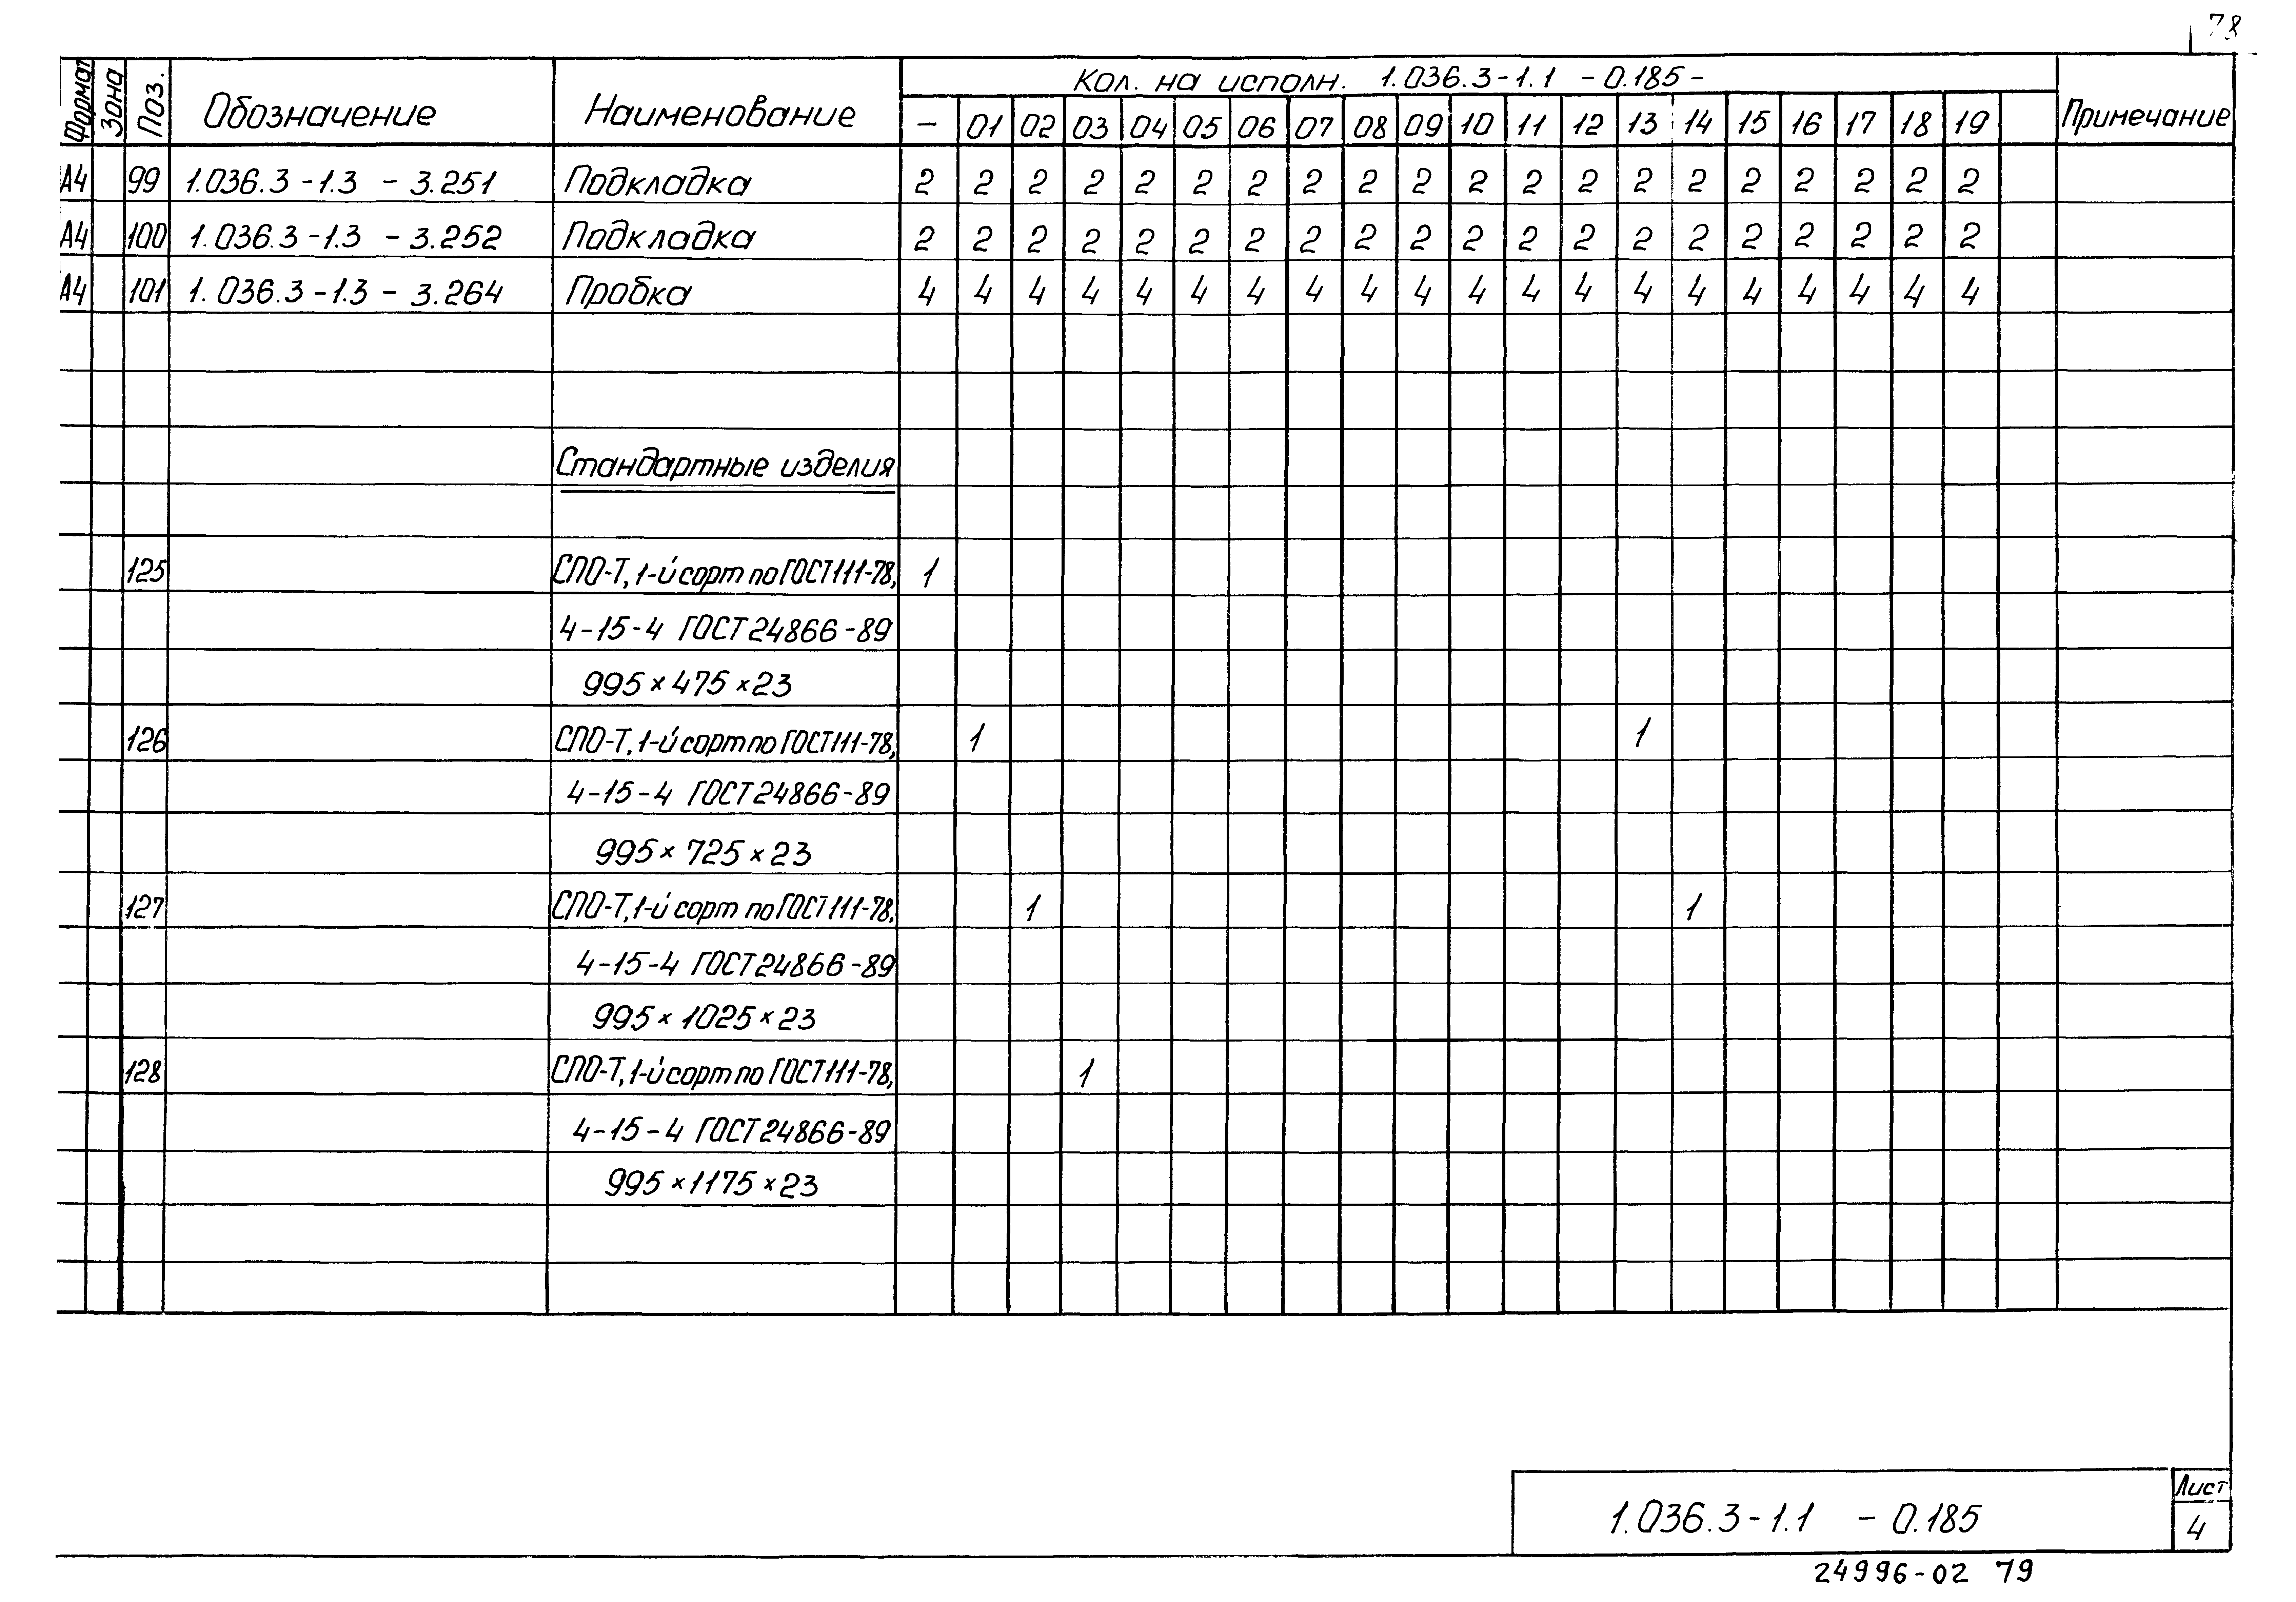 78
Формат Зона Поз. Обозначение Наименование Кол. на исполн. 1.036.3-1.1 - 0.185- Примечание
– 01 02 03 04 05 06 07 08 09 10 11 12 13 14 15 16 17 18 19
А4 99 1.036.3-1.3 - 3.251 Подкладка 2 2 2 2 2 2 2 2 2 2 2 2 2 2 2 2 2 2 2 2
А4 100 1.036.3-1.3 - 3.252 Подкладка 2 2 2 2 2 2 2 2 2 2 2 2 2 2 2 2 2 2 2 2
А4 101 1.036.3-1.3 - 3.264 Пробка 4 4 4 4 4 4 4 4 4 4 4 4 4 4 4 4 4 4 4 4
Стандартные изделия
125 СПО-Т, 1-й сорт по ГОСТ 111-78, 1
4-15-4 ГОСТ 24866-89
995×475×23
126 СПО-Т, 1-й сорт по ГОСТ 111-78, 1 1
4-15-4 ГОСТ 24866-89
995×725×23
127 СПО-Т, 1-й сорт по ГОСТ 111-78, 1 1
4-15-4 ГОСТ 24866-89
995×1025×23
128 СПО-Т, 1-й сорт по ГОСТ 111-78, 1
4-15-4 ГОСТ 24866-89
995×1175×23
1.036.3-1.1 - 0.185 Лист
4
24996-02 79